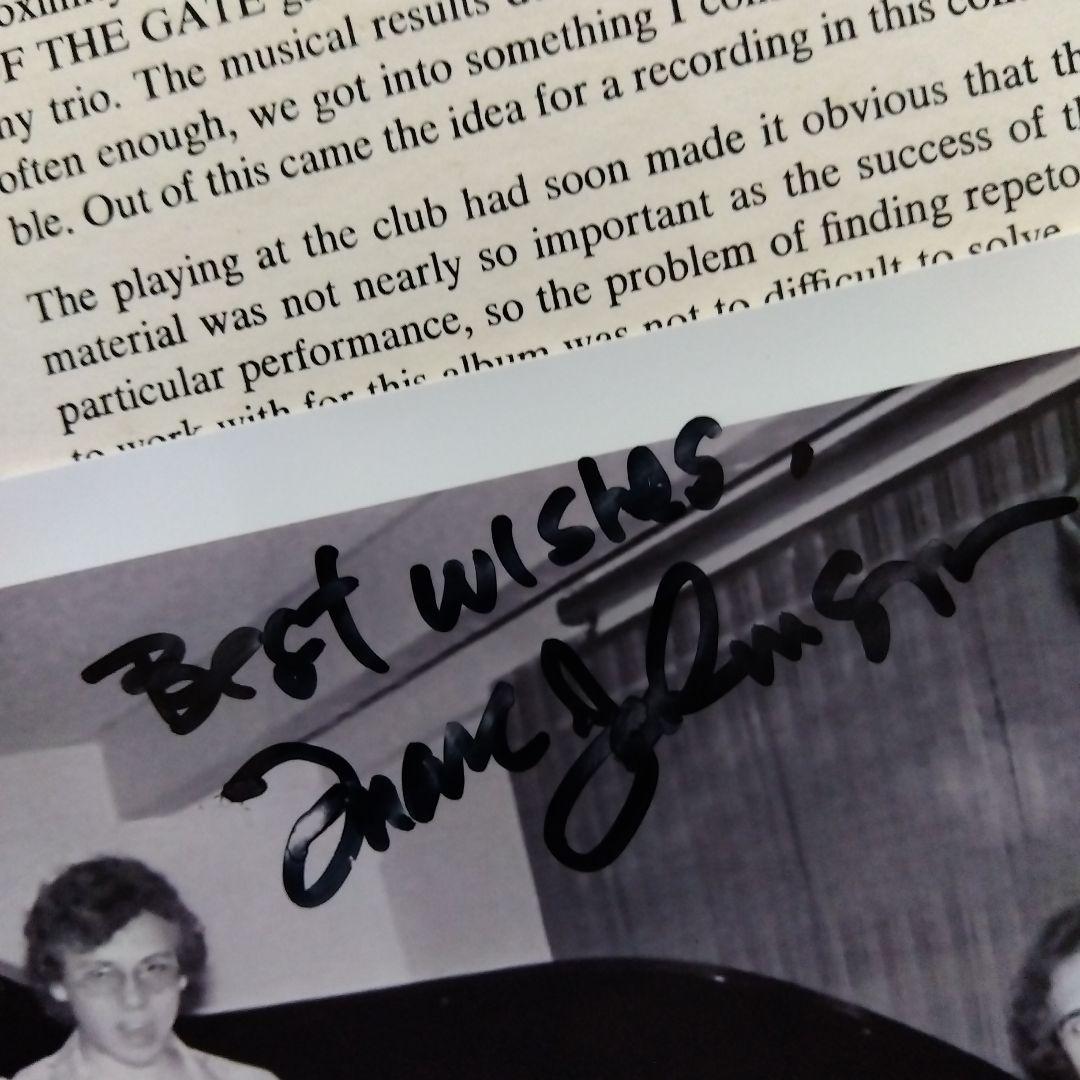 OF THE GATE
my trio. The musical results
often enough, we got into something I
ble. Out of this came the idea for a recording in this
The playing at the club had soon made it obvious that
material was not nearly so important as the success of
particular performance, so the problem of finding
to work with for this album was not to difficult to solve
Best wishes,
Marc Johnson